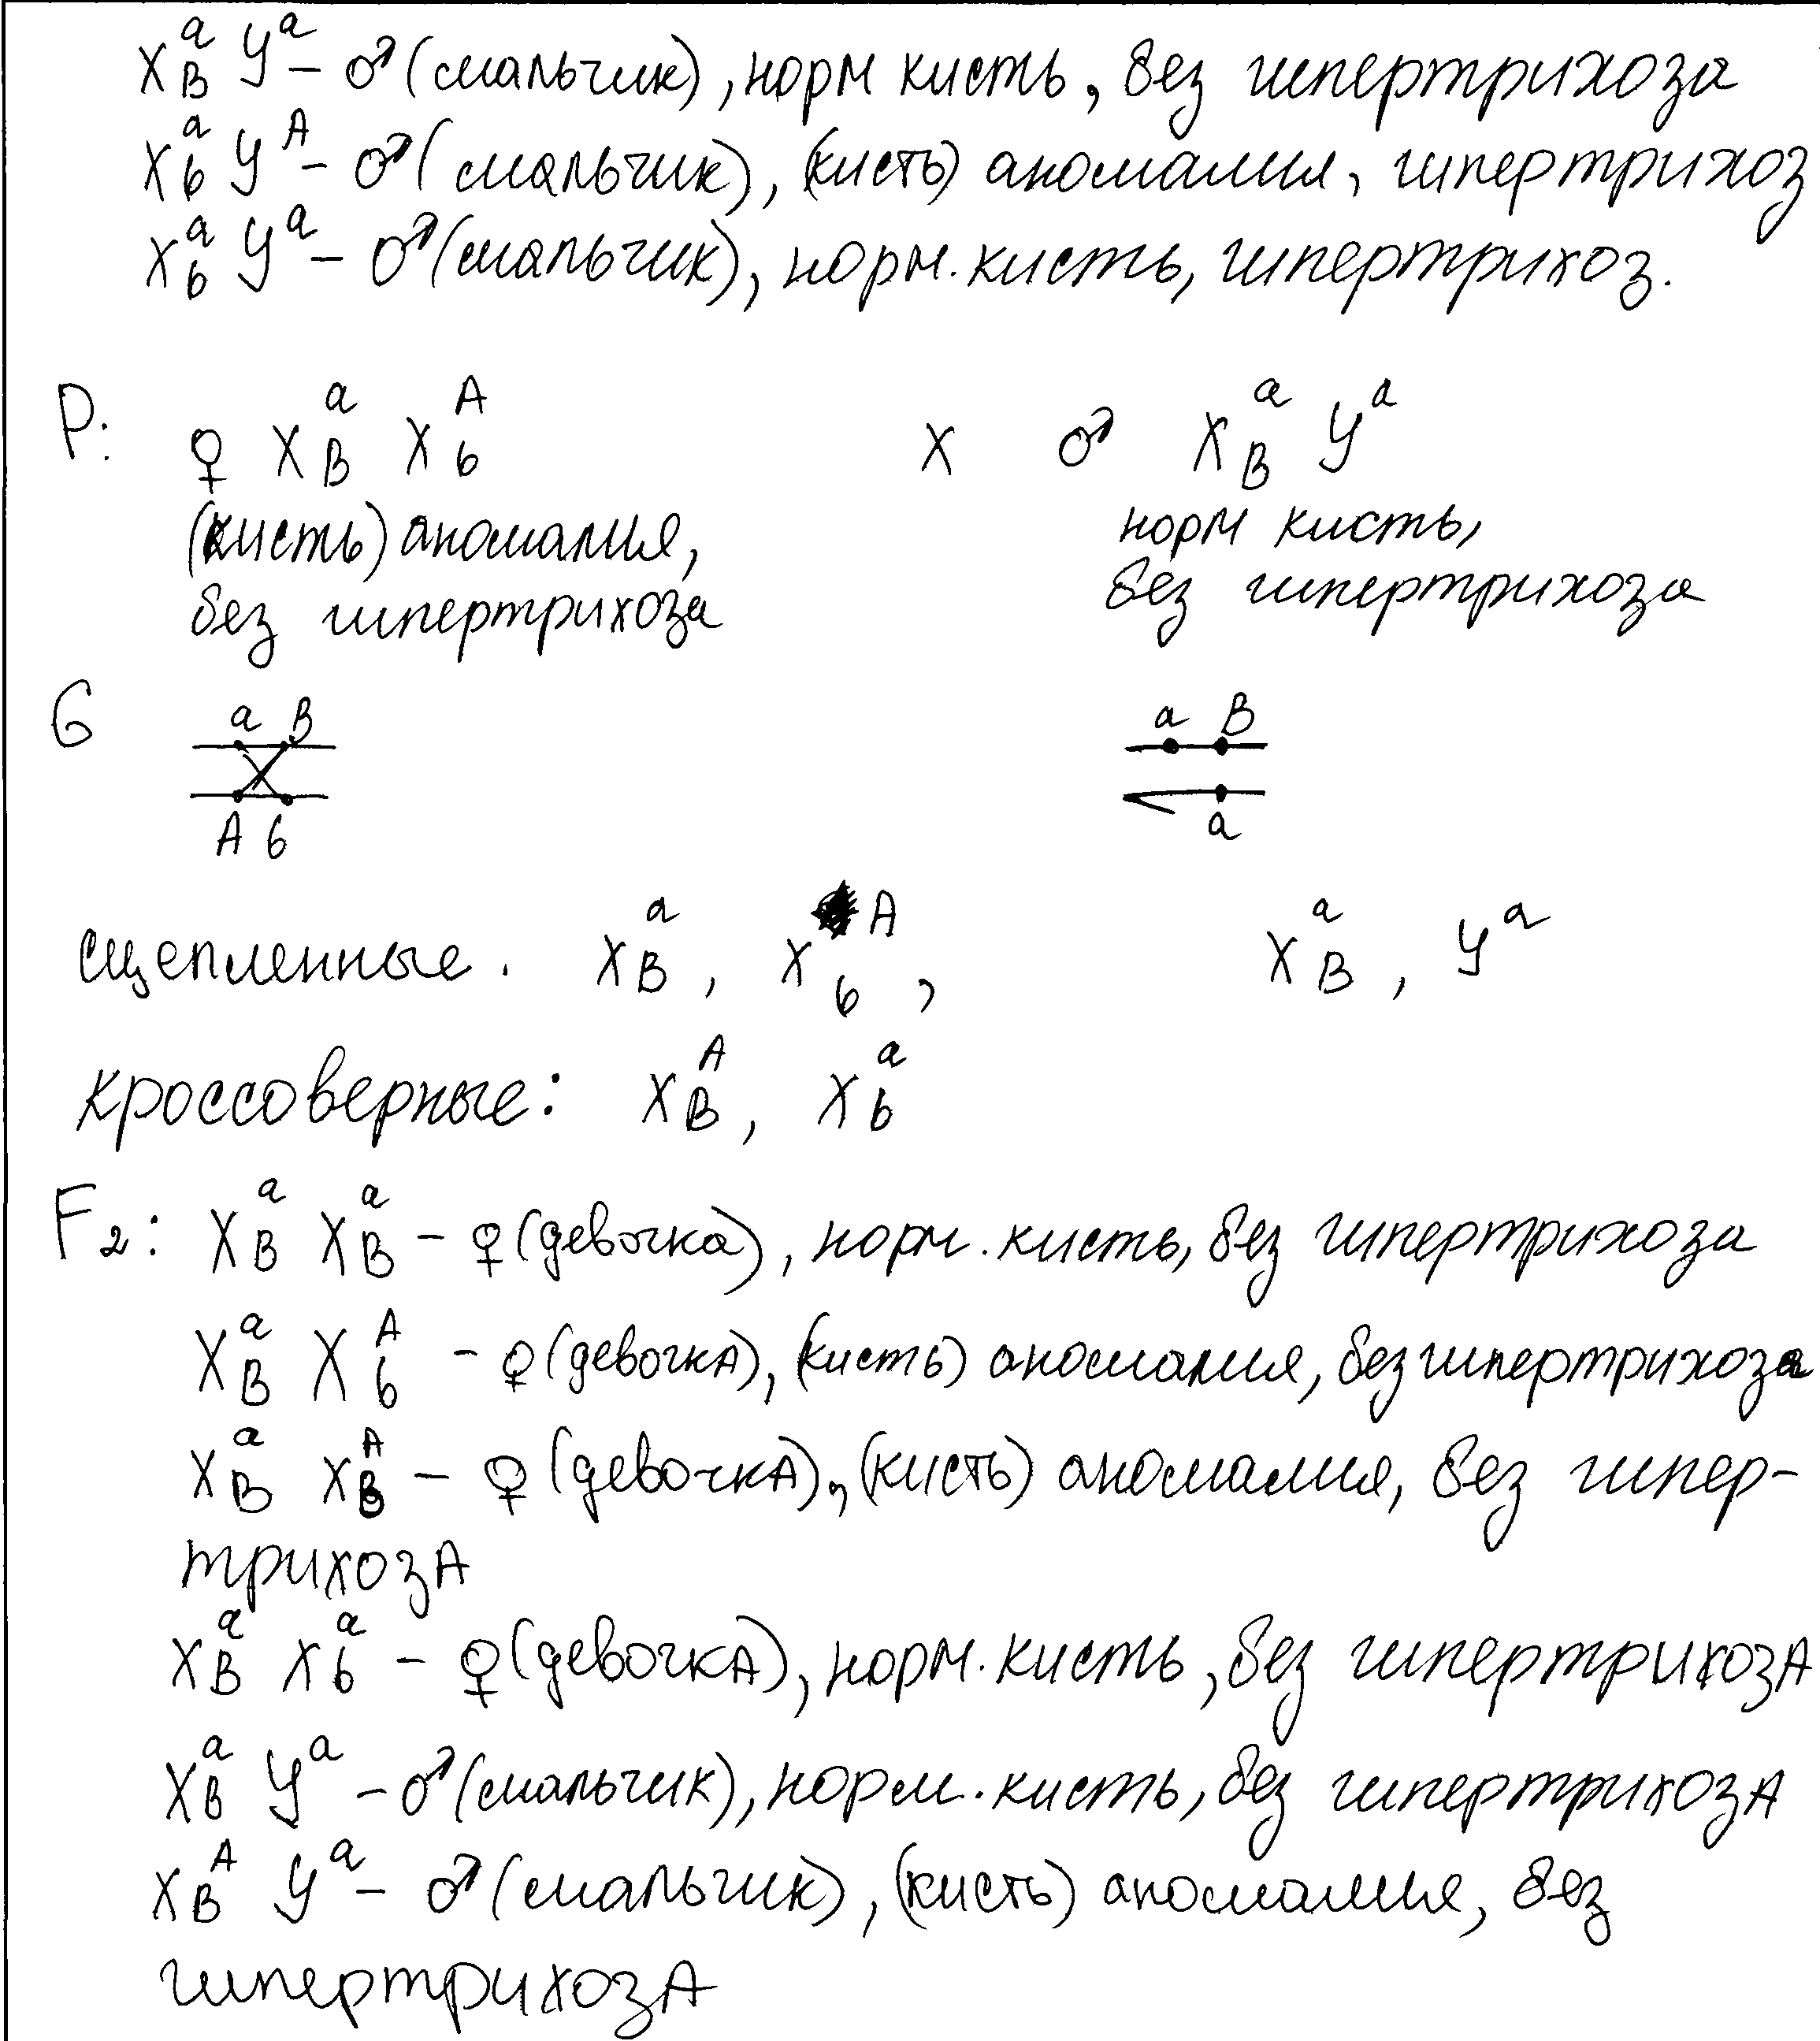 X^a_B У^a – ♂ (мальчик), норм кисть, без гипертрихоза
X^a_b У^A – ♂ (мальчик), (кисть) аномалия, гипертрихоз
X^a_b У^a – ♂ (мальчик), норм. кисть, гипертрихоз.
P: ♀ X^a_B X^A_b x ♂ X^a_B У^a
(кисть) аномалия, норм кисть,
без гипертрихоза без гипертрихоза
G a B a B
A b a
сцепленные. X^a_B, X^A_b, X^a_B, У^a
кроссоверные: X^A_B, X^a_b
F₂: X^a_B X^a_B – ♀ (девочка), норм. кисть, без гипертрихоза
X^a_B X^A_b – ♀ (девочкА), (кисть) аномалия, без гипертрихоза
X^a_B X^A_B – ♀ (девочкА), (кисть) аномалия, без гипер-
трихозА
X^a_B X^a_b – ♀ (девочкА), норм. кисть, без гипертрихозА
X^a_B У^a – ♂ (мальчик), норм. кисть, без гипертрихозА
X^A_B У^a – ♂ (мальчик), (кисть) аномалия, без
гипертрихозА